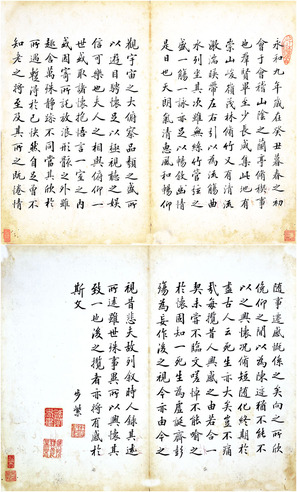 永和九年歲在癸丑暮春之初
會于會稽山陰之蘭亭脩稧事
也羣賢畢至少長咸集此地有
崇山峻嶺茂林脩竹又有清流
激湍暎帶左右引以為流觴曲
水列坐其次雖無絲竹管絃之
盛一觴一詠亦足以暢敘幽情
是日也天朗氣清惠風和暢仰
觀宇宙之大俯察品類之盛所
以遊目騁懷足以極視聽之娛
信可樂也夫人之相與俯仰一
世或取諸懷抱悟言一室之內
或因寄所託放浪形骸之外雖
趣舍萬殊靜躁不同當其欣於
所遇暫得於己快然自足曾不
知老之將至及其所之既惓情
隨事遷感慨係之矣向之所欣
俛仰之間以為陳迹猶不能不
以之興懷況脩短隨化終期於
盡古人云死生亦大矣豈不痛
哉每攬昔人興感之由若合一
契未嘗不臨文嗟悼不能喻之
於懷固知一死生為虛誕齊彭
殤為妄作後之視今亦由今之
視昔悲夫故列敘時人錄其
所述雖世殊事異所以興懷其
致一也後之攬者亦將有感於
斯文